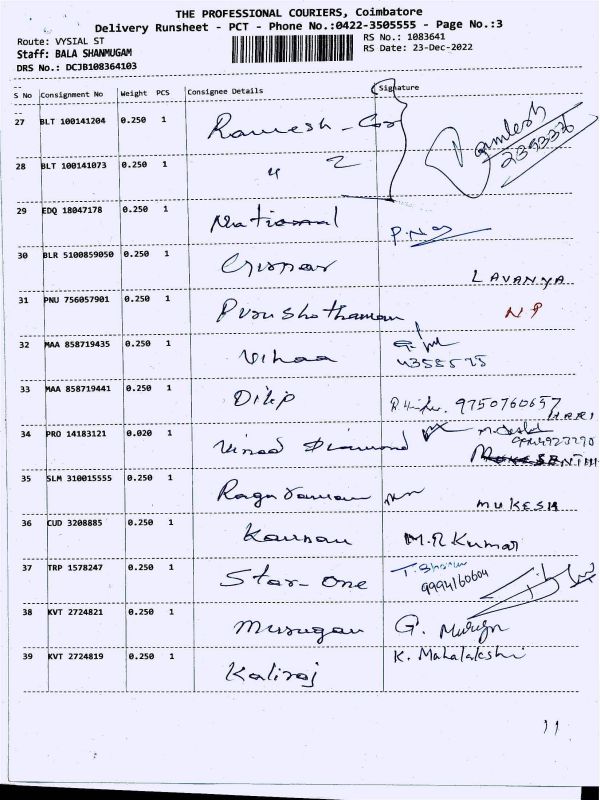 THE PROFESSIONAL COURIERS, Coimbatore
Delivery Runsheet - PCT - Phone No.:0422-3505555 - Page No.:3
Route: VYSIAL ST RS No.: 1083641
Staff: BALA SHANMUGAM RS Date: 23-Dec-2022
DRS No.: DCJB108364103
S No Consignment No Weight PCS Consignee Details Signature
27 BLT 100141204 0.250 1 Ramesh - Cos
28 BLT 100141073 0.250 1 " 2
29 EDQ 18047178 0.250 1 National
30 BLR 5100859050 0.250 1 LAVANYA
31 PNU 756057901 0.250 1 Purushothaman NP
32 MAA 858719435 0.250 1 Vihaa
33 MAA 858719441 0.250 1 Dilip 9750760657
34 PRO 14183121 0.020 1 Vinod Diamond
35 SLM 310015555 0.250 1 Raguraman MUKESH
36 CUD 3208885 0.250 1 M.R Kumar
37 TRP 1578247 0.250 1 Star-One 9994160604
38 KVT 2724821 0.250 1 Murugan G. Murugn
39 KVT 2724819 0.250 1 Kaliraj K. Mahalakshi
11